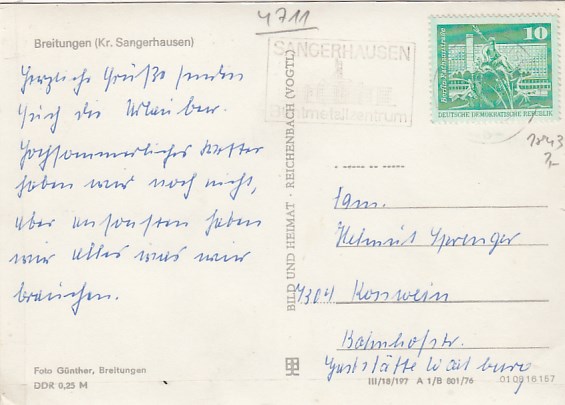 4711
Breitungen (Kr. Sangerhausen)
Herzliche Grüße senden
Euch die Urlauber.
Hochsommerliches Wetter
haben wir noch nicht,
aber ansonsten haben
wir alles was wir
brauchen.
Foto Günther, Breitungen
DDR 0,25 M
BILD UND HEIMAT · REICHENBACH (VOGTL)
SANGERHAUSEN
10
Berlin, Rathausstraße
DEUTSCHE DEMOKRATISCHE REPUBLIK
1843
Fam.
Helmut Sprenger
7304 Roswein
Bahnhofstr.
Gaststätte Wartburg
III/18/197 A 1/B 801/76
01 09 16 157